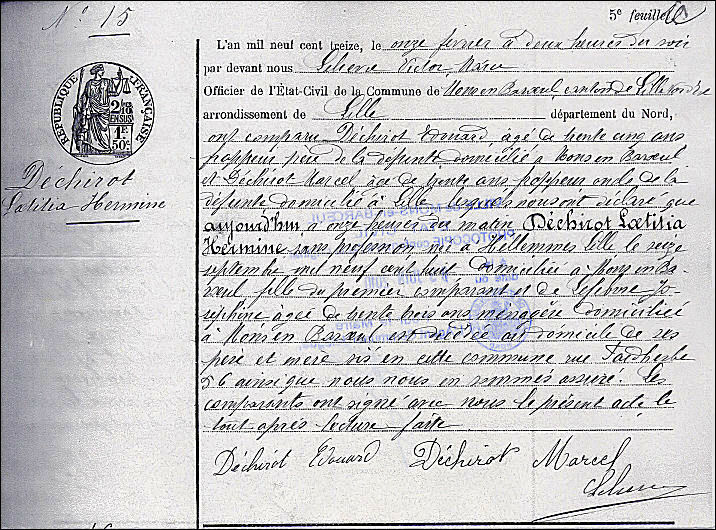 N° 15
5e feuillet
L'an mil neuf cent treize, le onze fevrier à deux heures du soir
par devant nous Victor, Marie
Officier de l'État-Civil de la Commune de Mons en Barœul, canton de Lille
arrondissement de Lille département du Nord,
ont comparu Déchirot Edouard, agé de trente cinq ans
père de la défunte domicilié à Mons en Barœul
et Déchirot Marcel agé de trente ans oncle de la
défunte domicilié à Lille lesquels nous ont déclaré que
aujourd'hui à onze heures du matin Déchirot Lætitia
Hermine sans profession, née à Hellemmes Lille le seize
septembre mil neuf cent huit domiciliée à Mons en Ba-
rœul fille du premier comparant et de Jo-
sephine agée de trente trois ans ménagère domiciliée
à Mons en Barœul est décédée au domicile de ses
père et mère sis en cette commune rue Faidherbe
56 ainsi que nous nous en sommes assuré. Les
comparants ont signé avec nous le présent acte le
tout après lecture faite
Déchirot Edouard Déchirot Marcel
RÉPUBLIQUE FRANÇAISE
1F
50c
Déchirot
Lætitia Hermine